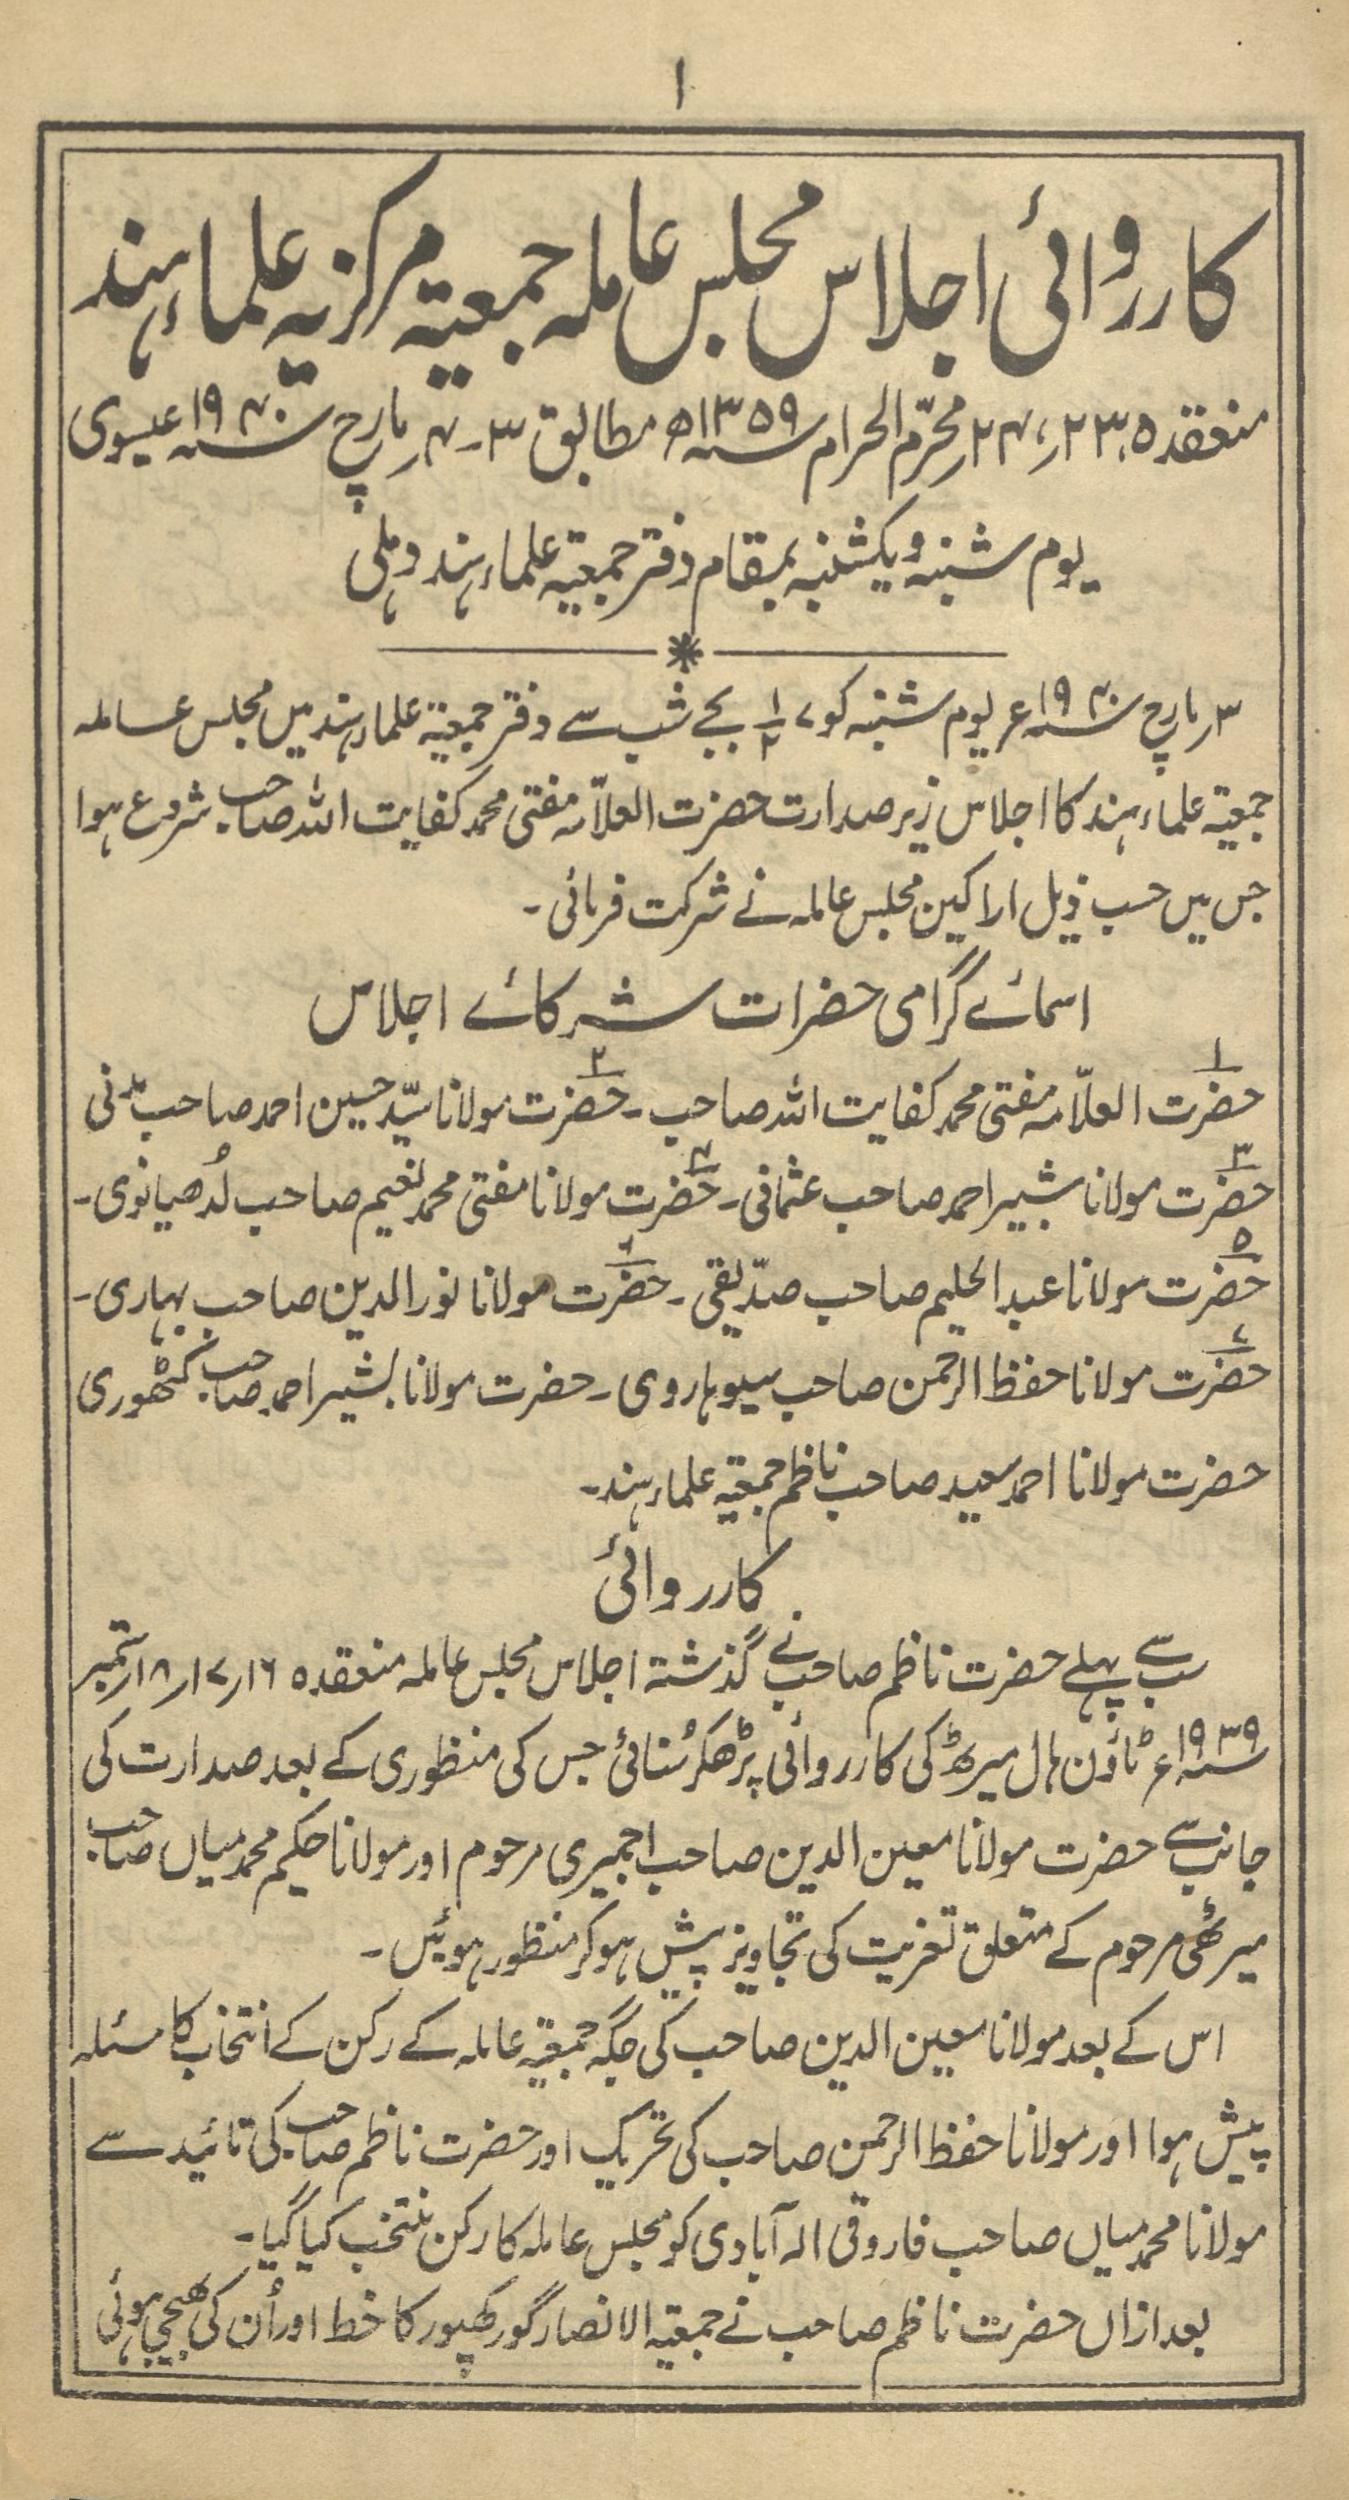 ۱
کارروائی اجلاس مجلس عاملہ جمعیۃ مرکزیہ علماء ہند
منعقدہ ۲۳، ۲۴؍ محرّم الحرام سنہ ۱۳۵۹ھ مطابق ۳-۴؍ مارچ سنہ ۱۹۴۰ عیسوی
یوم شنبہ و یکشنبہ بمقام دفتر جمعیۃ علماء ہند دہلی
۳؍ مارچ سنہ ۱۹۴۰ء یوم شنبہ کو ۷ ۱/۲ بجے شب سے دفتر جمعیۃ علماء ہند میں مجلس عاملہ
جمعیۃ علماء ہند کا اجلاس زیر صدارت حضرت العلاّمہ مفتی محمد کفایت اللہ صاحب شروع ہوا
جس میں حسب ذیل اراکین مجلس عاملہ نے شرکت فرمائی۔
اسمائے گرامی حضرات شرکائے اجلاس
۱ حضرت العلاّمہ مفتی محمد کفایت اللہ صاحب۔ ۲ حضرت مولانا سیّد حسین احمد صاحب مدنی
۳ حضرت مولانا شبیر احمد صاحب عثمانی۔ ۴ حضرت مولانا مفتی محمد نعیم صاحب لُدھیانوی۔
۵ حضرت مولانا عبد الحلیم صاحب صدّیقی۔ ۶ حضرت مولانا نور الدین صاحب بہاری۔
۷ حضرت مولانا حفظ الرحمن صاحب سیوہاروی۔ حضرت مولانا بشیر احمد صاحب کٹھوری
حضرت مولانا احمد سعید صاحب ناظم جمعیۃ علماء ہند۔
کارروائی
سب سے پہلے حضرت ناظم صاحب نے گذشتہ اجلاس مجلس عاملہ منعقدہ ۱۶؍ ۱۷؍ ۱۸؍ ستمبر
سنہ ۱۹۳۹ء ٹاؤن ہال میرٹھ کی کارروائی پڑھکر سُنائی جس کی منظوری کے بعد صدارت کی
جانب سے حضرت مولانا معین الدین صاحب اجمیری مرحوم اور مولانا حکیم محمد میاں صاحب
میرٹھی مرحوم کے متعلق تعزیت کی تجاویز پیش ہوکر منظور ہوئیں۔
اس کے بعد مولانا معین الدین صاحب کی جگہ جمعیۃ عاملہ کے رکن کے انتخاب کا مسئلہ
پیش ہوا اور مولانا حفظ الرحمن صاحب کی تحریک اور حضرت ناظم صاحب کی تائید سے
مولانا محمد میاں صاحب فاروقی الہ آبادی کو مجلس عاملہ کا رکن منتخب کیا گیا۔
بعد ازاں حضرت ناظم صاحب نے جمعیۃ الانصار گورکھپور کا خط اور اُن کی بھیجی ہوئی